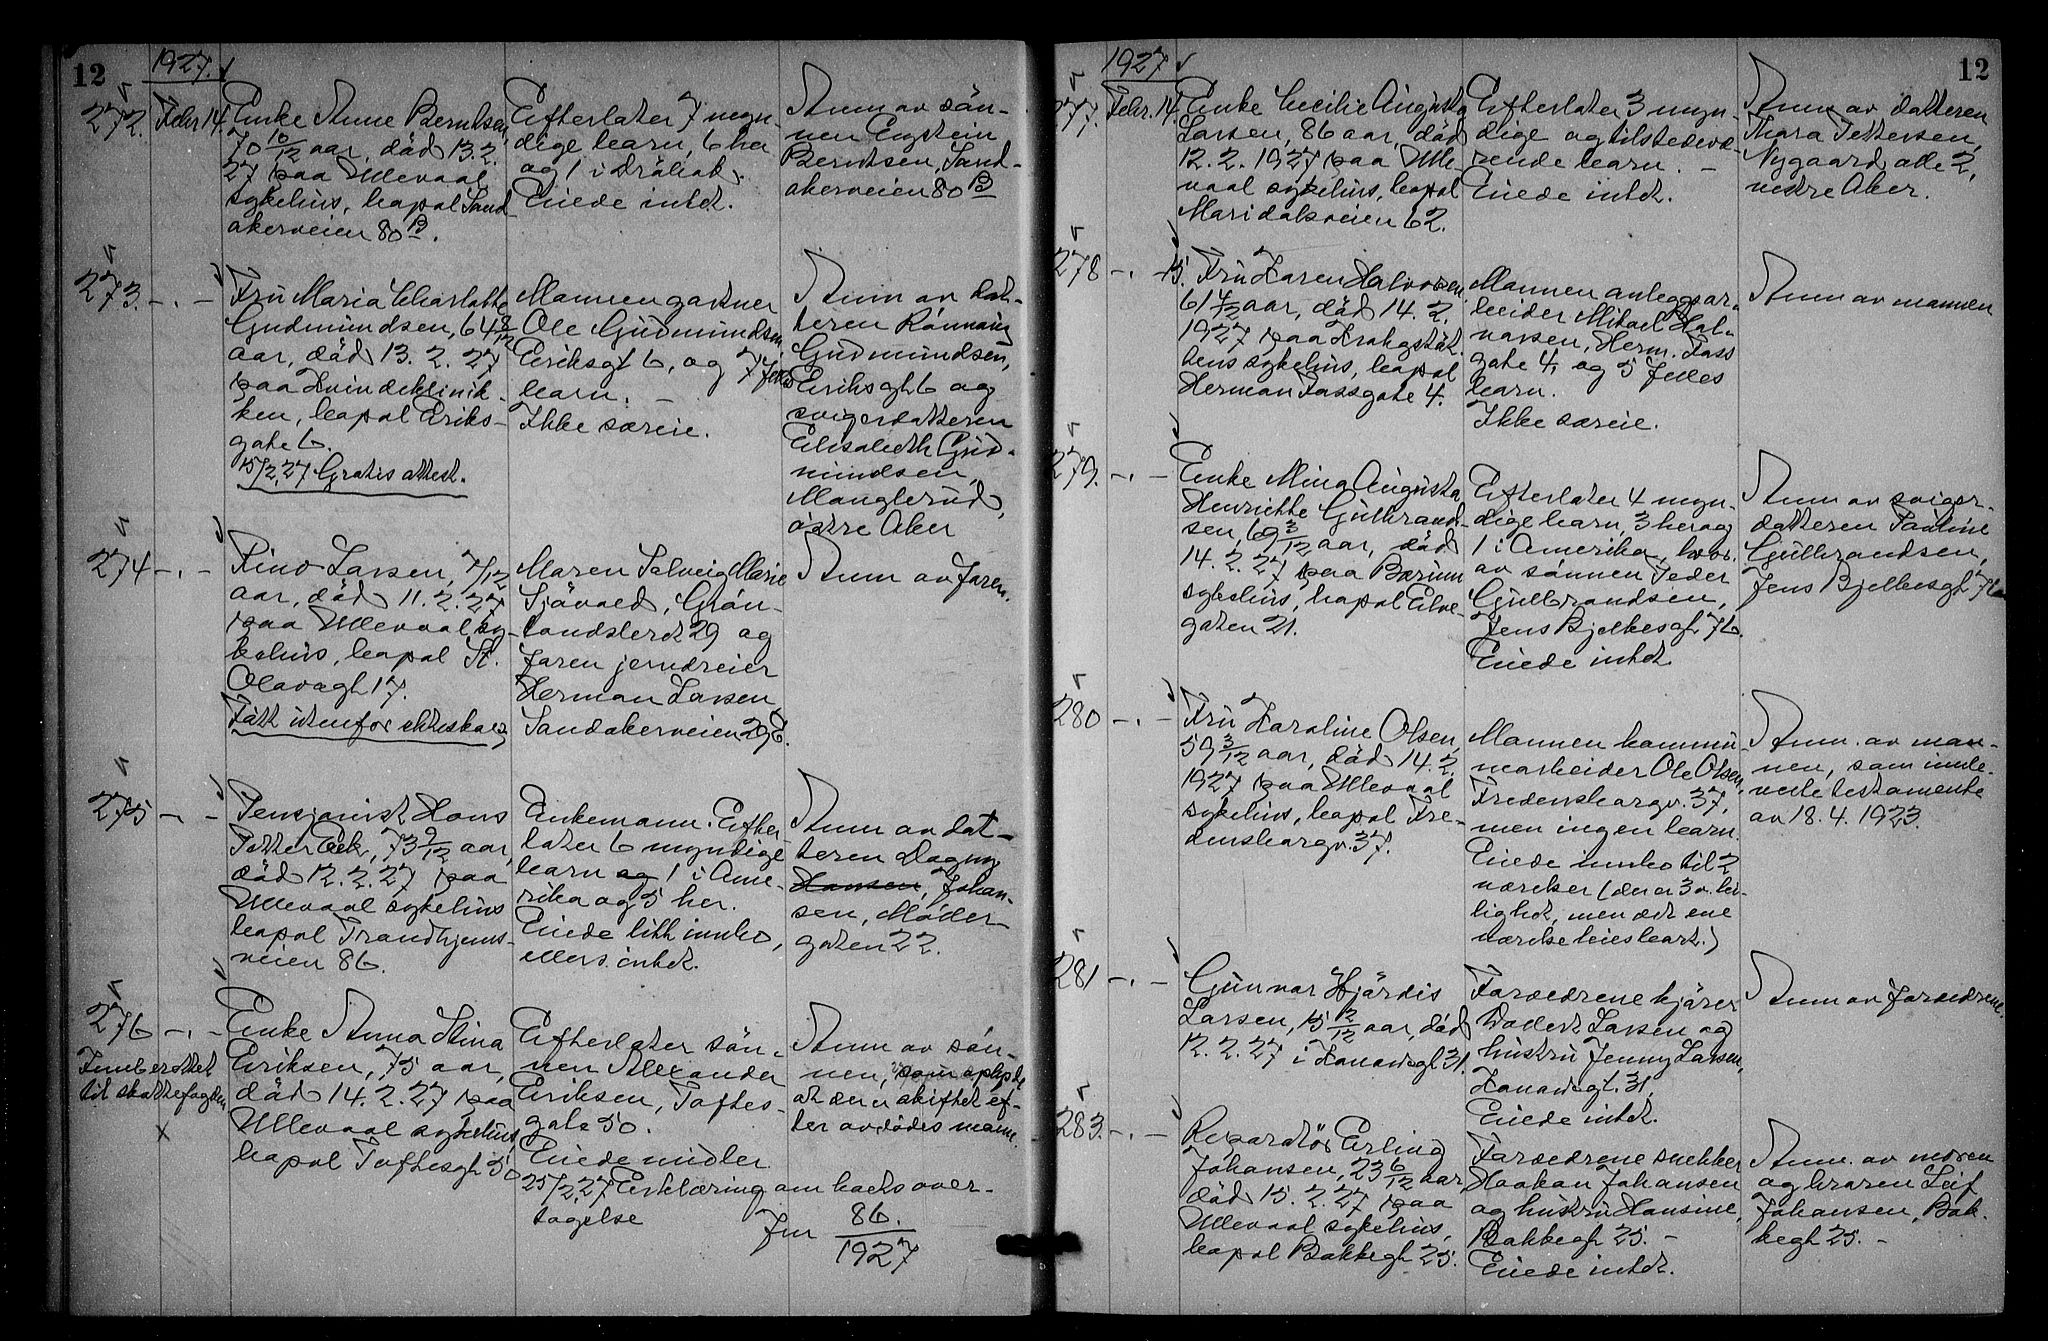 12
1927.
272. Febr 14. Enke Anne Berntsen,
70 10/12 aar, død 13.2.
27 paa Ullevaal
sykehus, bopæl Sand-
akerveien 80 B.
Efterlater 7 myn-
dige barn, 6 her
og 1 i Drøbak.
Eiede intet.
Anm av søn-
nen Eystein
Berntsen, Sand-
akerveien 80 B
273. -.- Fru Maria Charlotte
Gudmundsen, 64 8/12
aar, død 13. 2. 27
paa Kvindeklinik-
ken, bopæl Eriks-
gate 6.
15/2.27 Gratis attest.
Mannen gartner
Ole Gudmundsen,
Eriksgt 6, og 7 felles
barn. -
Ikke særeie.
Anm av dat-
teren Rønnaug
Gudmundsen,
Eriksgt 6 og
svigerdatteren
Elisabeth Gud-
mundsen,
Manglerud,
østre Aker
274 -.- Finn Larsen, 7/12
aar, død 11. 2. 27
paa Ullevaal sy-
kehus, bopæl St.
Olavsgt 17.
Født utenfor ekteskap
Moren Solveig Marie
Sjøvold, Grøn-
landsleret 29 og
faren jerndreier
Herman Larsen,
Sandakerveien 29 E.
Anm av faren.
275 -.- Pensjonist Hans
Petter Eek, 73 9/12 aar,
død 12. 2. 27 paa
Ullevaal sykehus
bopæl Trondhjems-
veien 86.
Enkemann. Efter-
later 6 myndige
barn og 1 i Ame-
rika og 5 her.
Eiede litt innbo,
ellers intet.
Anm av dat-
teren Dagny
Hansen, Johan-
sen, Møller-
gaten 22.
276 -.- Enke Anna Stina
Eriksen, 75 aar,
død 14. 2. 27 paa
Ullevaal sykehus,
bopæl Toftesgt 50
Innberettet
til skattefogden
x
Efterlater søn-
nen Alexander
Eriksen, Toftes-
gate 50.
Eiede midler
25/2.27 Erklæring om boets over-
tagelse Jnr 86./1927
Anm av søn-
nen, som oplyste
at der er skiftet ef-
ter avdødes mann.
12
1927
277. Febr. 14. Enke Cecilie Augusta
Larsen, 86 aar, død
12. 2. 1927 paa Ulle-
vaal sykehus, bopæl
Maridalsveien 62.
Efterlater 3 myn-
dige og tilstedevæ-
rende barn. -
Eiede intet.
Anm av datteren
Thora Pettersen,
Nygaards alle 2,
vestre Aker.
278 -.- 15. Fru Karen Halvorsen,
61 4/12 aar, død 14. 2.
1927 paa Krohgstøt-
tens sykehus, bopæl
Herman Fossgate 4.
Mannen anleggsar-
beider Mikael Hal-
vorsen, Herm. Foss
gate 4, og 5 felles
barn.
Ikke særeie.
Anm av mannen
279. -.- Enke Mina Augusta
Henriette Gulbrand-
sen, 69 3/12 aar, død
14. 2. 27 paa Bærum
sykehus, bopæl Elve-
gaten 21.
Efterlater 4 myn-
dige barn, 3 her og
1 i Amerika, hvor-
av sønnen Peder
Gulbrandsen,
Jens Bjelkesgt 76.
Eiede intet
Anm av sviger-
datteren Pauline
Gulbrandsen,
Jens Bjelkesgt 76
280 -.- Fru Karoline Olsen,
59 3/12 aar, død 14. 2.
1927 paa Ullevaal
sykehus, bopæl Fre-
densborgv. 37.
Mannen kommu-
nearbeider Ole Olsen,
Fredensborgv. 37,
men ingen barn.
Eiede innbo til 2
værelser (der er 3 v. lei-
lighet, men det ene
værelse leies bort.)
Anm. av man-
nen, som innle-
verte testamente
av 18. 4. 1923.
281 -.- Gunvor Hjørdis
Larsen, 15 2/12 aar, død
12. 2. 27 i Kanondsgt 31.
Forældrene kjører
Dolbert Larsen og
hustru Jenny Larsen,
31.
Eiede intet.
Anm av forældrene.
283. -.- Reparatør Erling
Johansen, 23 6/12 aar,
død 15. 2. 27 paa
Ullevaal sykehus,
bopæl Bakkegt 25.
Forældrene snekker
Haakon Johansen
og hustru Hansine,
Bakkegt 25. -
Eiede intet.
Anm. av moren
og broren Leif
Johansen, Bak-
kegt 25. -